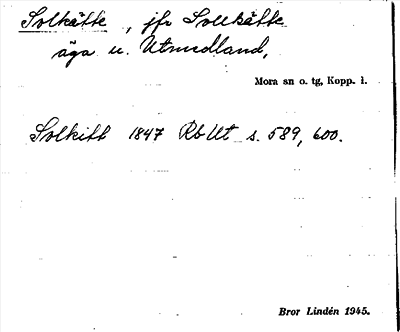 Solkätte, jfr Sollkätte
äga u. Utmedland,
Mora sn o. tg, Kopp. l.
Solkitt 1847 Rb Ut s. 589, 600.
Bror Lindén 1945.